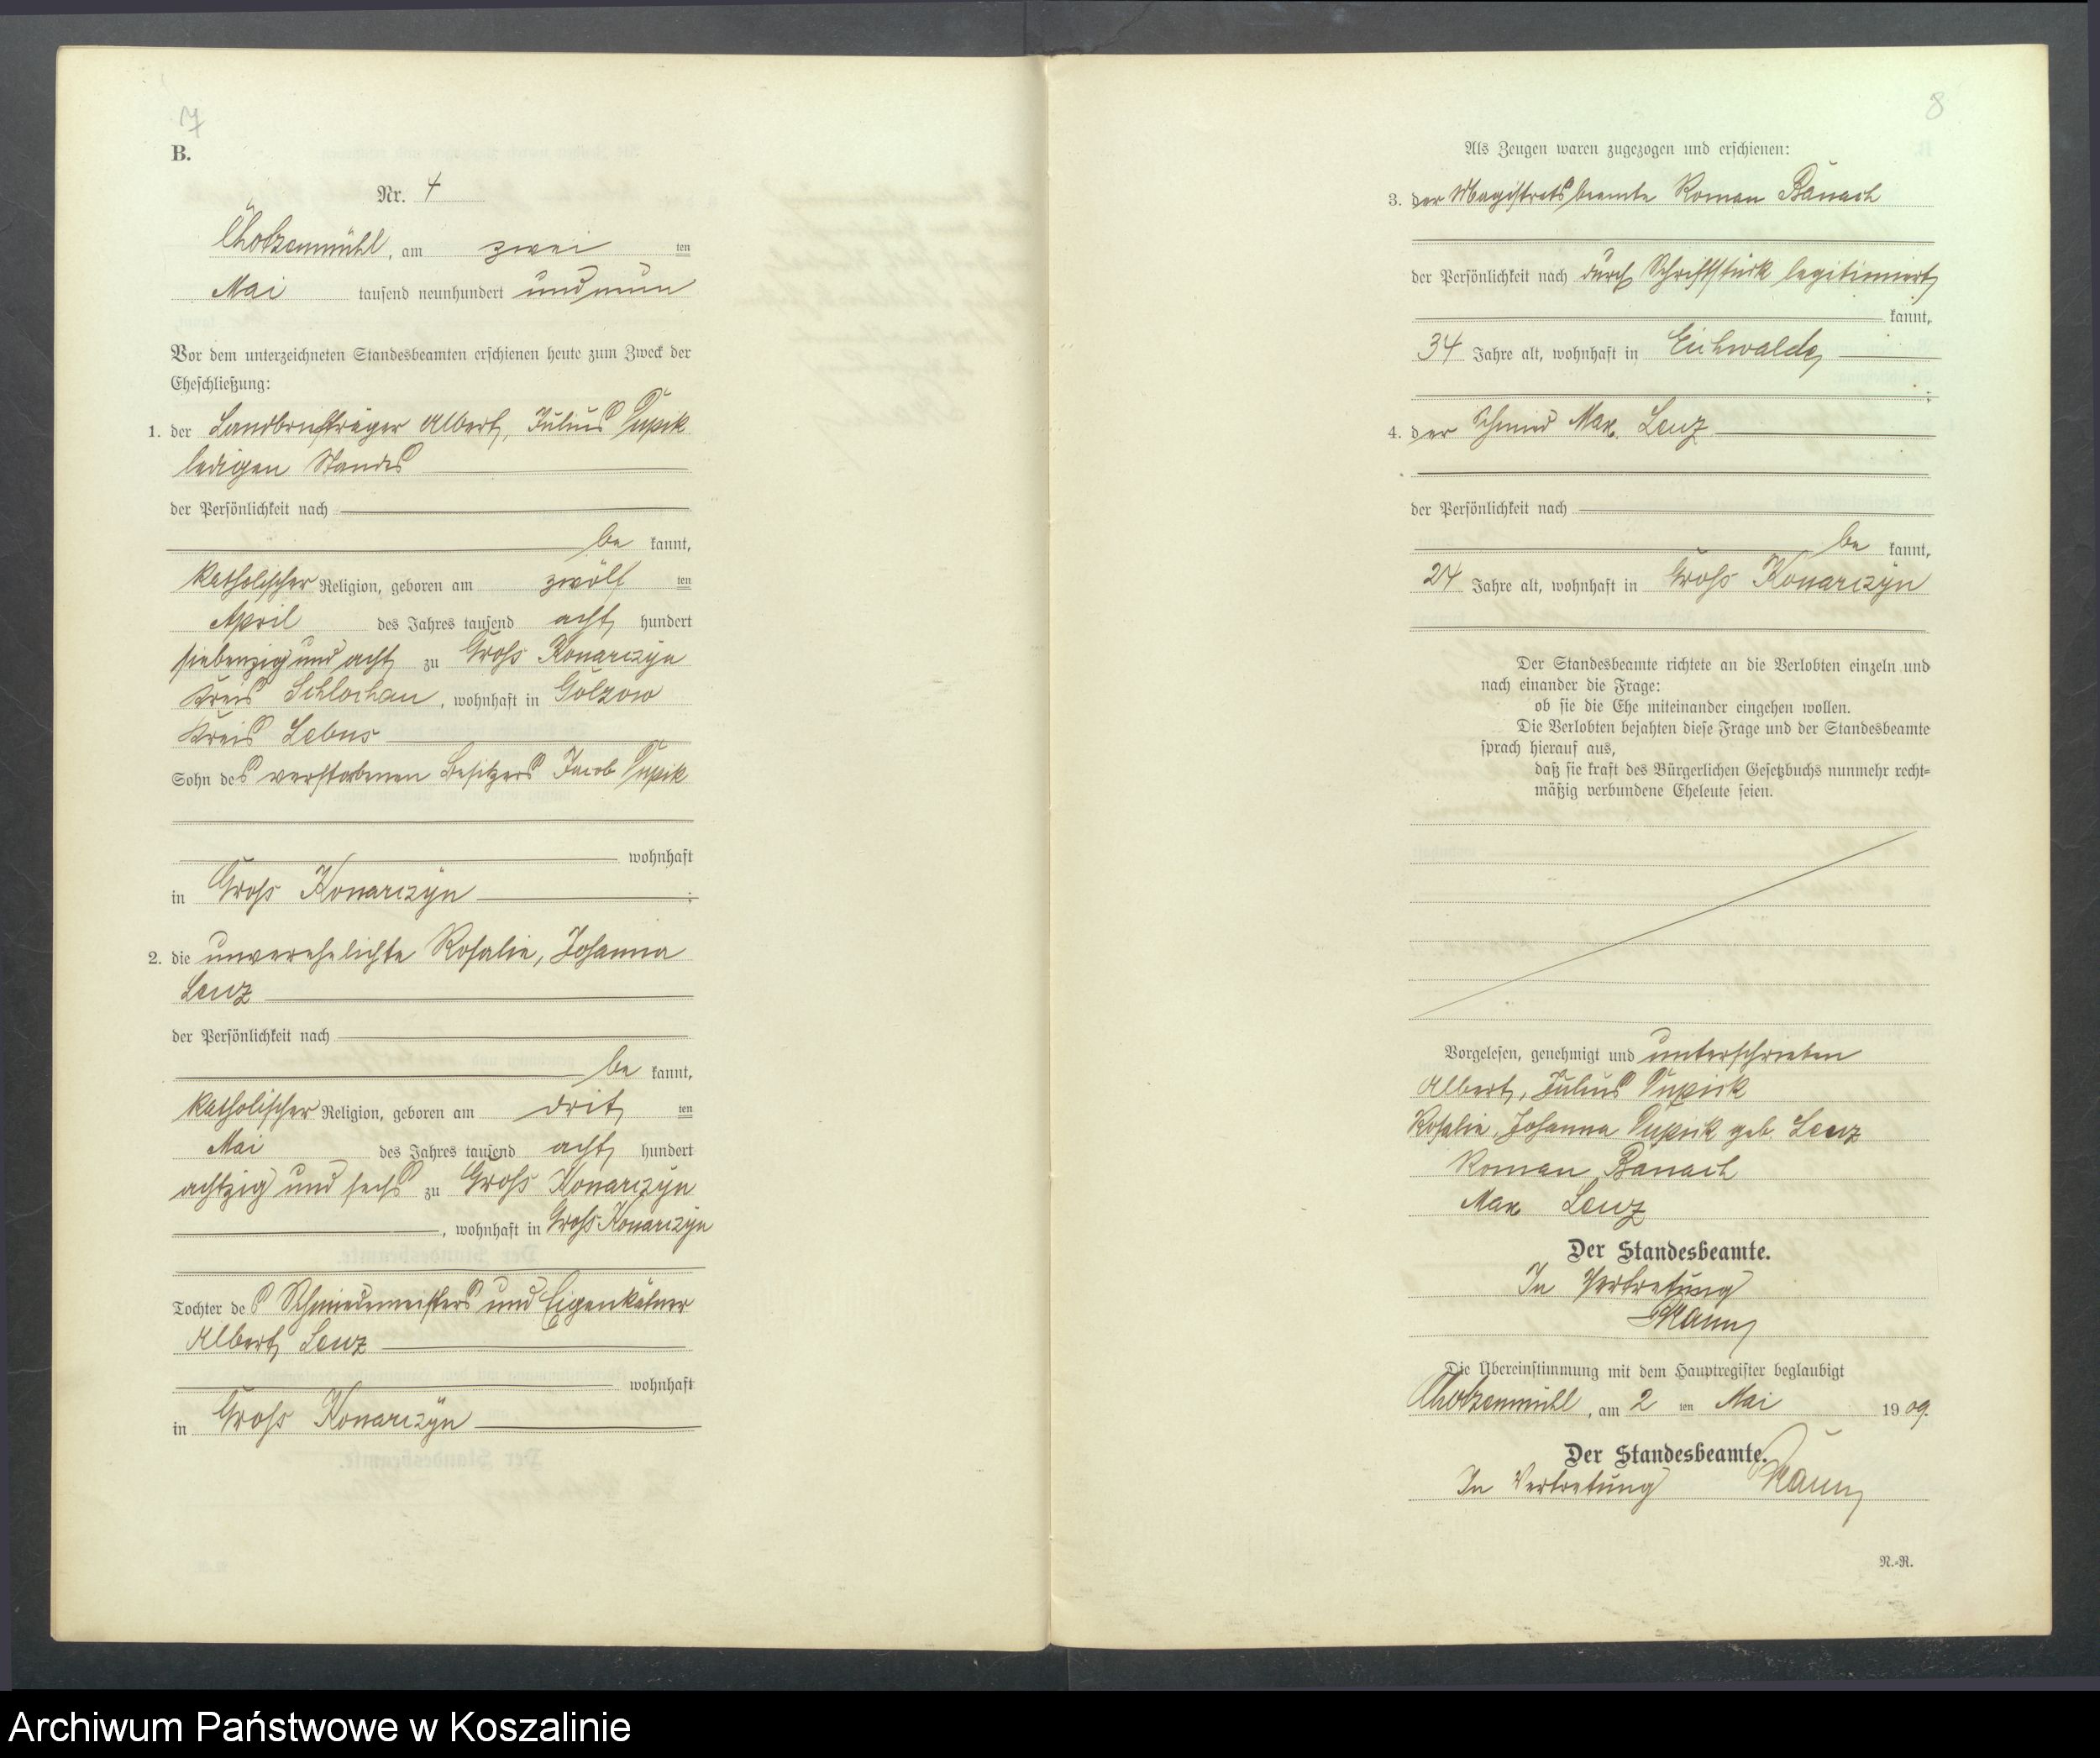 7
B.
Nr. 4
Chotzenmühl, am zwei ten
Mai tausend neunhundert und neun
Vor dem unterzeichneten Standesbeamten erschienen heute zum Zweck der
Eheschließung:
1. der Landbriefträger Albert, Julius Pupik
ledigen Standes
der Persönlichkeit nach
be kannt,
katholischer Religion, geboren am zwölf ten
April des Jahres tausend acht hundert
siebenzig und acht zu Groß Konarczyn
Kreis Schlochau, wohnhaft in Golzow
Kreis Lebus
Sohn des verstorbenen Besitzers Jacob Pupik
wohnhaft
in Groß Konarczyn ;
2. die unverehelichte Rosalie, Johanna
Lenz
der Persönlichkeit nach
be kannt,
katholischer Religion, geboren am drit ten
Mai des Jahres tausend acht hundert
achtzig und sechs zu Groß Konarczyn
, wohnhaft in Groß Konarczyn
Tochter des Schmiedemeisters und Eigenkätner
Albert Lenz
wohnhaft
in Groß Konarczyn
8
Als Zeugen waren zugezogen und erschienen:
3. der Magistratsbeamte Roman Banach
der Persönlichkeit nach durch Schriftstück legitimiert
kannt,
34 Jahre alt, wohnhaft in Eichwalde
;
4. der Schmied Max Lenz
der Persönlichkeit nach
be kannt,
24 Jahre alt, wohnhaft in Groß Konarczyn
Der Standesbeamte richtete an die Verlobten einzeln und
nach einander die Frage:
ob sie die Ehe miteinander eingehen wollen.
Die Verlobten bejahten diese Frage und der Standesbeamte
sprach hierauf aus,
daß sie kraft des Bürgerlichen Gesetzbuchs nunmehr recht=
mäßig verbundene Eheleute seien.
Vorgelesen, genehmigt und unterschrieben
Albert, Julius Pupik
Rosalie, Johanna Pupik geb. Lenz
Roman Banach
Max Lenz
Der Standesbeamte.
In Vertretung
Die Übereinstimmung mit dem Hauptregister beglaubigt
Chotzenmühl, am 2 ten Mai 1909.
Der Standesbeamte.
In Vertretung
N.=R.
Archiwum Państwowe w Koszalinie